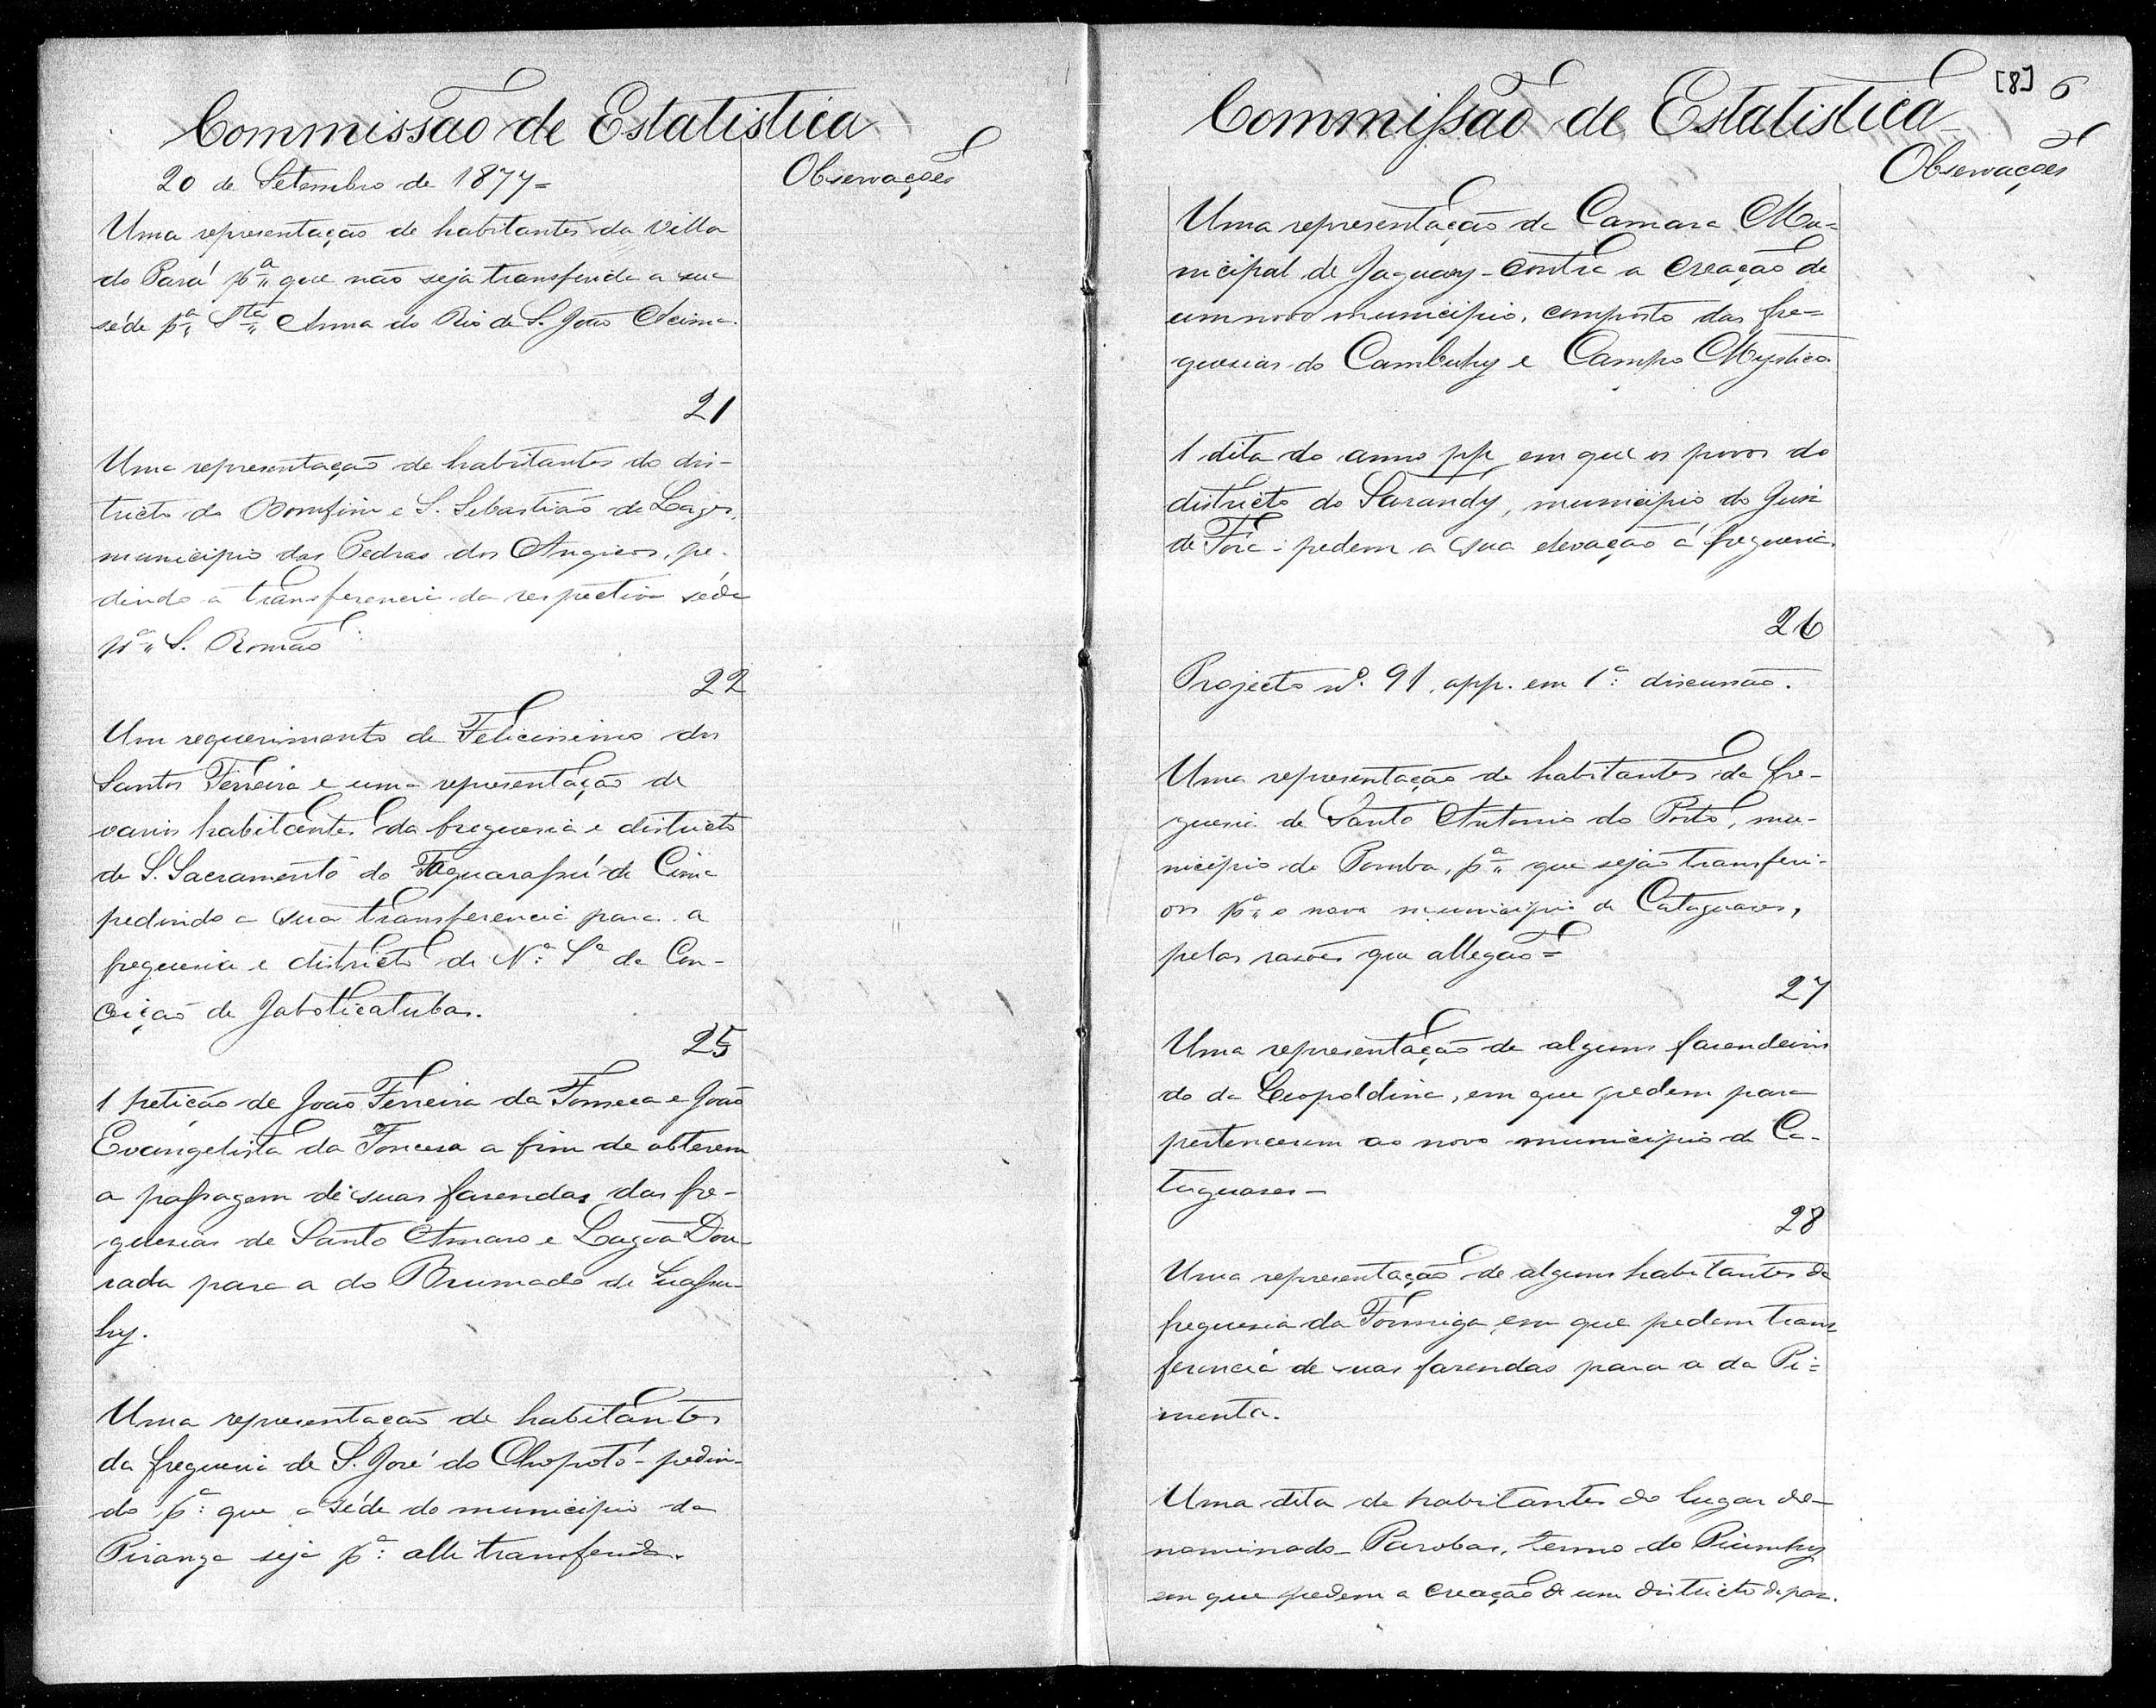 Commissão de Estatistica
20 de Setembro de 1877=
Observações
Uma representação de habitantes da Villa
do Pará pª que não seja transferida a sua
séde pª Stª Anna do Rio de S. João Acima.
21
Uma representação de habitantes do dis-
tricto do Bomfim e S. Sebastião de Lages,
municipio das Pedras dos Angicos, pe-
dindo a transferencia da respectiva séde
pª S. Romão
22
Um requerimento de Felicissimo dos
Santos Ferreira e uma representação de
varios habitantes da freguesia e districto
de S. Sacramento do Taquarassú de Cima
pedindo a sua transferencia para a
freguesia e districto de Nª Sª da Con-
ceição de Jaboticatubas.
25
1 petição de João Ferreira da Fonseca e João
Evangelista da Fonceca a fim de obterem
a passagem de suas fasendas das fre-
guesias de Santo Amaro e Lagoa Dou-
rada para a do Brumado de Suassu-
hy.
Uma representação de habitantes
da freguesia de S. José do Chopotó - pedin-
do pª que a séde do municipio da
Piranga seja pª alli transferida.
[8] 6
Commissão de Estatistica
Observações
Uma representação da Camara Mu=
nicipal de Jaguary - contra a creação de
um novo municipio, composto das fre=
guesias do Cambuhy e Campo Mystico
1 dita do anno pp em que os povos do
districto do Sarandy, municipio do Juis
de Fóra - pedem a sua elevação á freguesia.
26
Projecto nº 91, app. em 1ª discussão.
Uma representação de habitantes da fre-
guesia de Santo Antonio do Porto, mu-
nicipio do Pomba, pª que sejão transferi-
os pª o novo municipio de Cataguases,
pelas rasões que allegão=
27
Uma representação de alguns fasendeiros
do da Leopoldina, em que pedem para
pertencerem ao novo municipio de Ca-
taguases -
28
Uma representação de alguns habitantes da
freguesia da Formiga em que pedem trans
ferencia de suas fazendas para a da Pi=
menta.
Uma dita de habitantes do lugar de-
nominado - Parobas, termo do Piumhy
em que pedem a creação de um districto de paz.